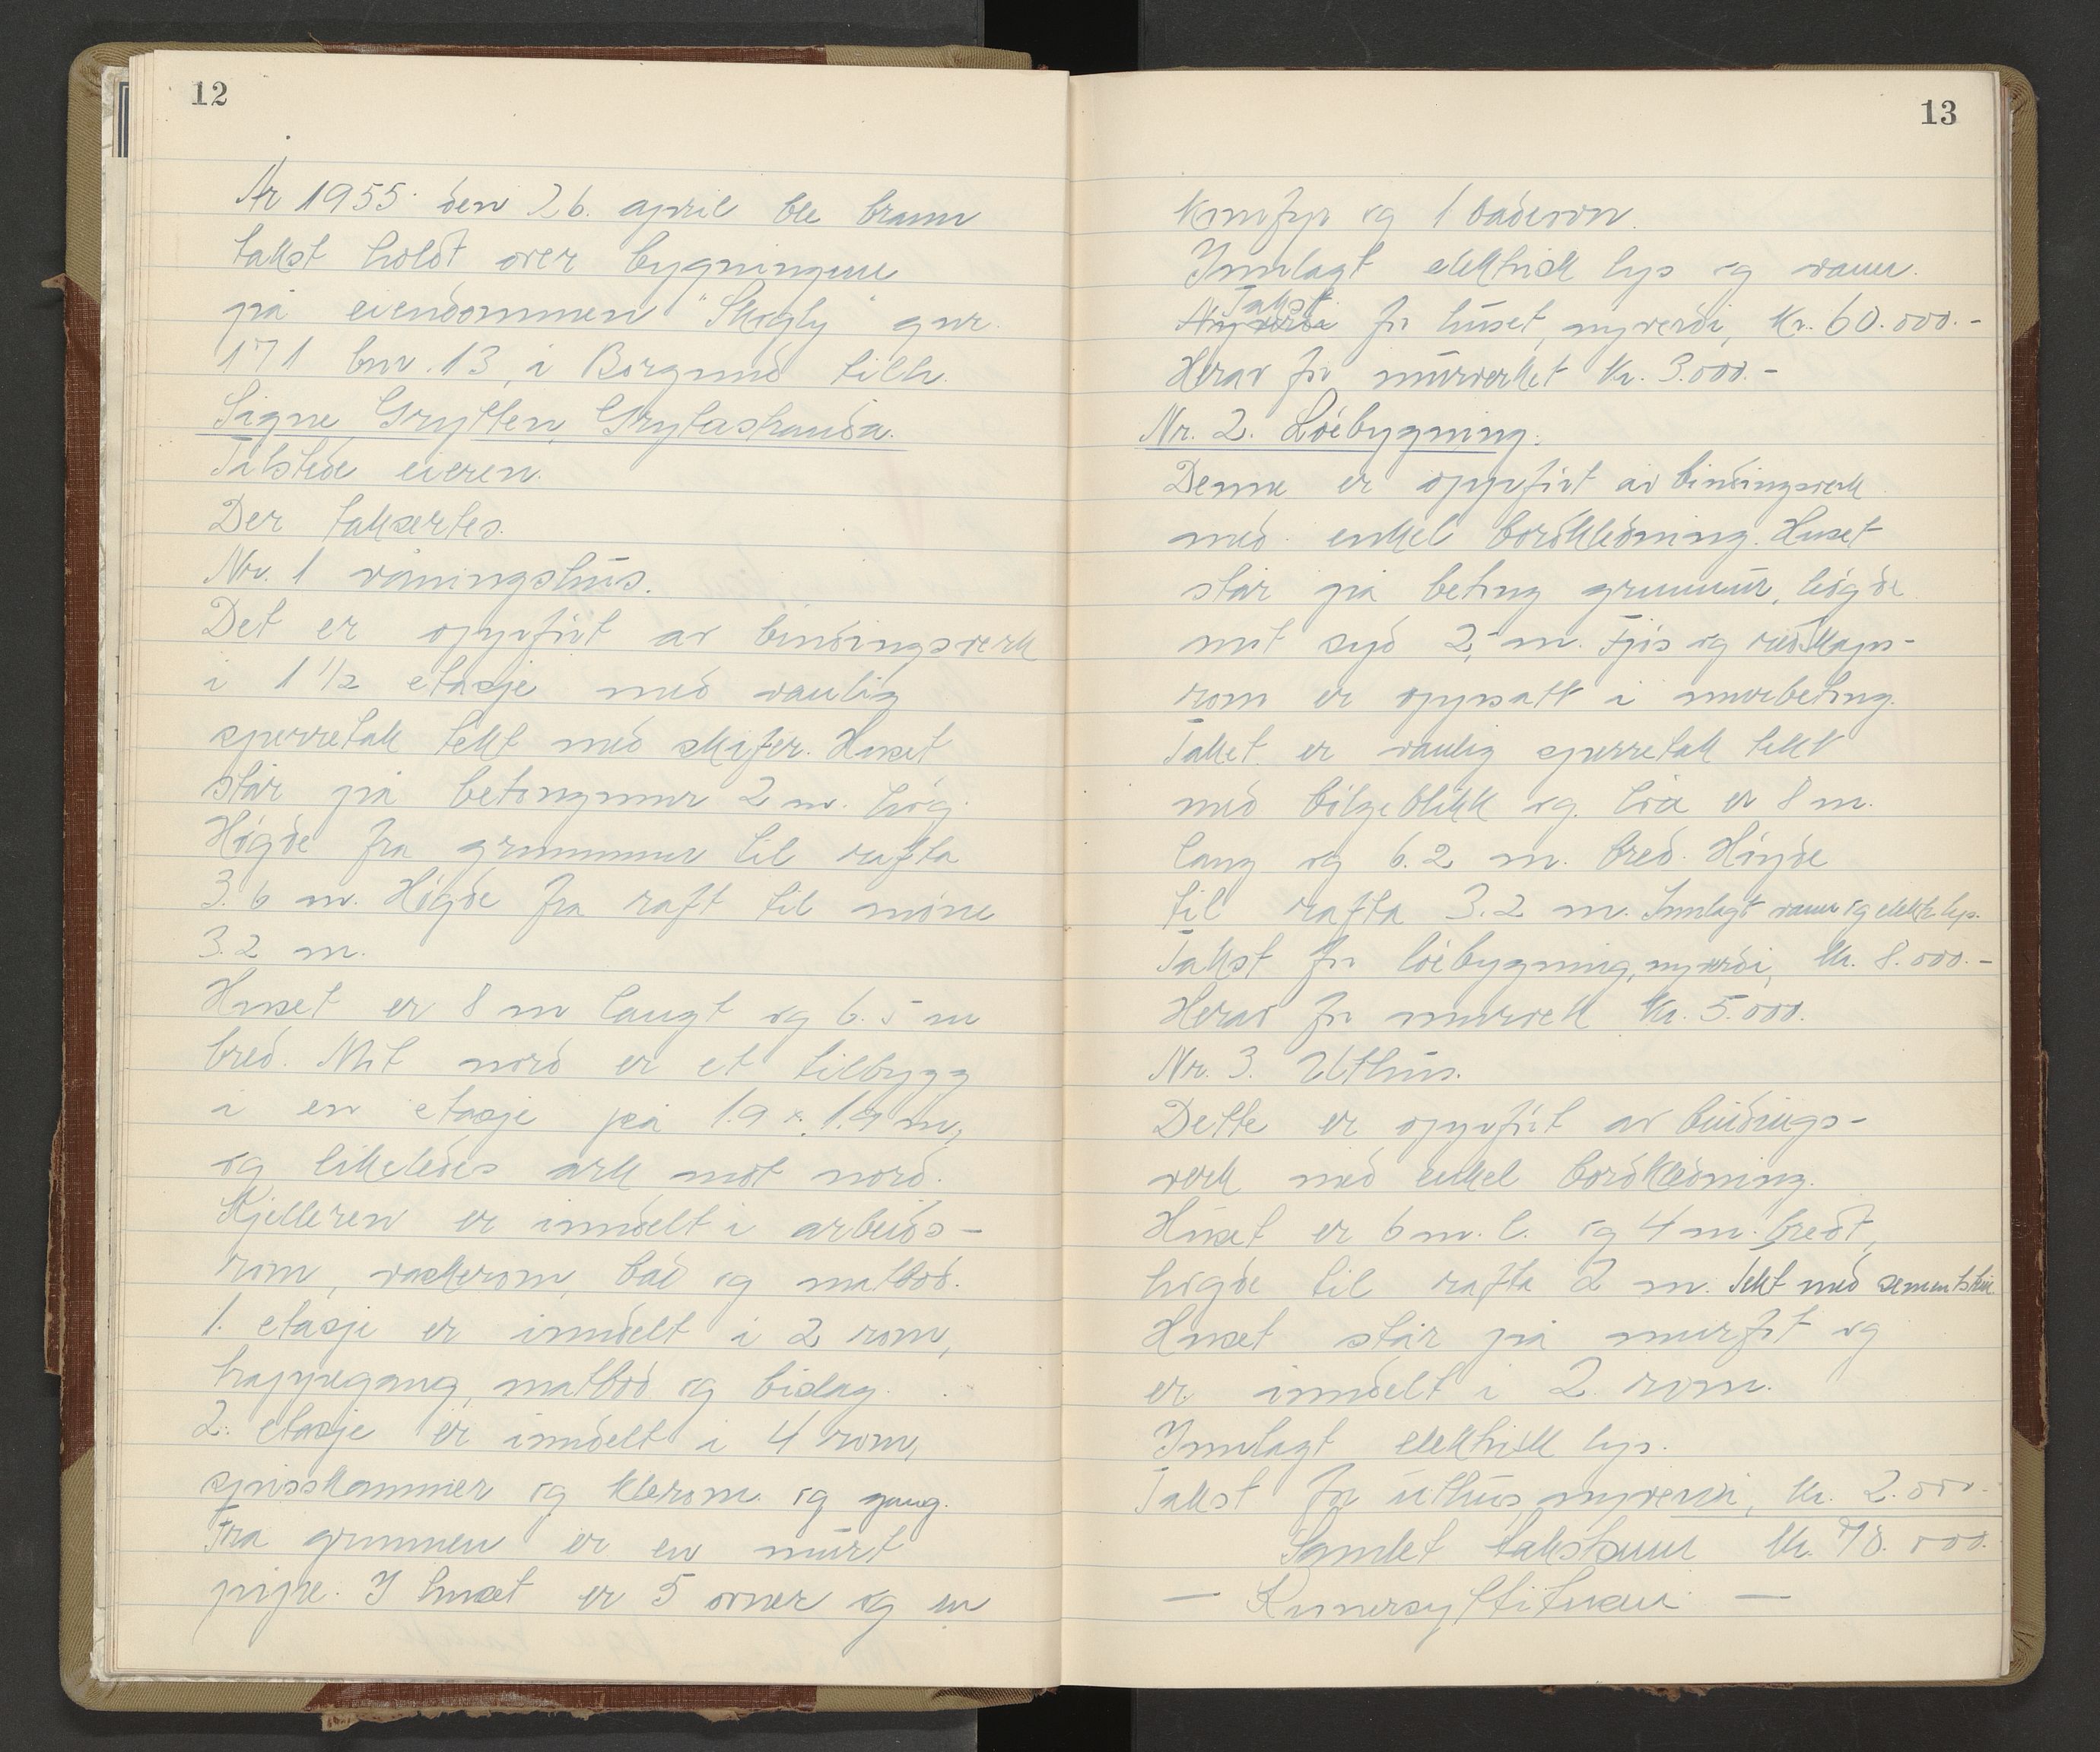 12
År 1955 den 26. april ble brann
takst holdt over bygningene
på eiendommen "Skogly" gnr.
171 bnr. 13, i Borgund tilh.
Signe Grytten, Grytastranda.
Tilstede eieren.
Der taksertes.
Nr. 1 våningshus.
Det er oppført av bindingsverk
i 1 1/2 etasje med vanlig
sperretak tekt med skifer. Huset
står på betongmur 2 m. høg.
Høgde fra grunnmur til rafta
3.6 m. Høgde fra raft til møne
3.2 m.
Huset er 8 m langt og 6.5 m
bred. Mot nord er et tilbygg
i en etasje på 1.9 x 1.9 m,
og likeledes ark mot nord.
Kjelleren er inndelt i arbeids-
rom, vaskerom, bad og matbod.
1. etasje er inndelt i 2 rom,
trappegang, matbod og bislag.
2. etasje er inndelt i 4 rom,
spisskammer og klerom og gang.
Fra grunnen er en murt
pipe. I huset er 5 ovner og en
13
komfyr og 1 badeovn.
Innlagt elektrisk lys og vann.
Takst
Nyverdi for huset, nyverdi, kr. 60.000.-
Herav for murverket kr. 3.000.-
Nr. 2. Løebygning.
Denne er oppført av bindingsverk
med enkel bordkledning. Huset
står på betong grunnmur, høgde
mot syd 2,- m. Fjøs og redskaps-
rom er oppsatt i murbetong.
Taket er vanlig sperretak tekt
med bølgeblikk og løa er 8 m.
lang og 6.2 m. bred. Høgde
til rafta 3.2 m. Innlagt vann og elektr. lys.
Takst for løebygning, nyverdi, kr. 8.000.-
Herav for murverk kr. 5.000.
Nr. 3. Uthus.
Dette er oppført av bindings-
verk med enkel bordkledning.
Huset er 6 m. l. og 4 m. bredt,
høgde til rafta 2 m. Tekt med sementstein
Huset står på murfot og
er inndelt i 2 rom.
Innlagt elektrisk lys.
Takst for uthus, nyverdi, kr. 2.000.-
Samlet takstsum kr. 78.000.